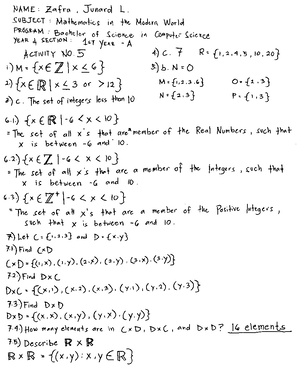 NAME: Zafra, Junard L.
SUBJECT: Mathematics in the Modern World
PROGRAM: Bachelor of Science in Computer Science
YEAR & SECTION: 1st YEAR - A
ACTIVITY NO. 5
1) M = {x ∈ ℤ | x ≤ 6}
2) {x ∈ ℝ | x ≤ 3 or > 12}
3) C. The set of integers less than 10
4) C. 7 R = {1, 2, 4, 5, 10, 20}
5) b. N = O
M = {1, 2, 3, 6} O = {2, 3}
N = {2, 3} P = {1, 3}
6.1) {x ∈ ℝ | -6 < x < 10}
= The set of all x's that are member of the Real Numbers, such that
x is between -6 and 10.
6.2) {x ∈ ℤ | -6 < x < 10}
= The set of all x's that are a member of the Integers, such that
x is between -6 and 10.
6.3) {x ∈ ℤ⁺ | -6 < x < 10}
= The set of all x's that are a member of the Positive Integers,
such that x is between -6 and 10.
7) Let C = {1, 2, 3} and D = {x, y}
7.1) Find C×D
C×D = {(1,x), (1,y), (2,x), (2,y), (3,x), (3,y)}
7.2) Find D×C
D×C = {(x,1), (x,2), (x,3), (y,1), (y,2), (y,3)}
7.3) Find D×D
D×D = {(x,x), (x,y), (y,x), (y,y)}
7.4) How many elements are in C×D, D×C, and D×D? 16 elements
7.5) Describe ℝ × ℝ
ℝ × ℝ = {(x,y) : x, y ∈ ℝ}